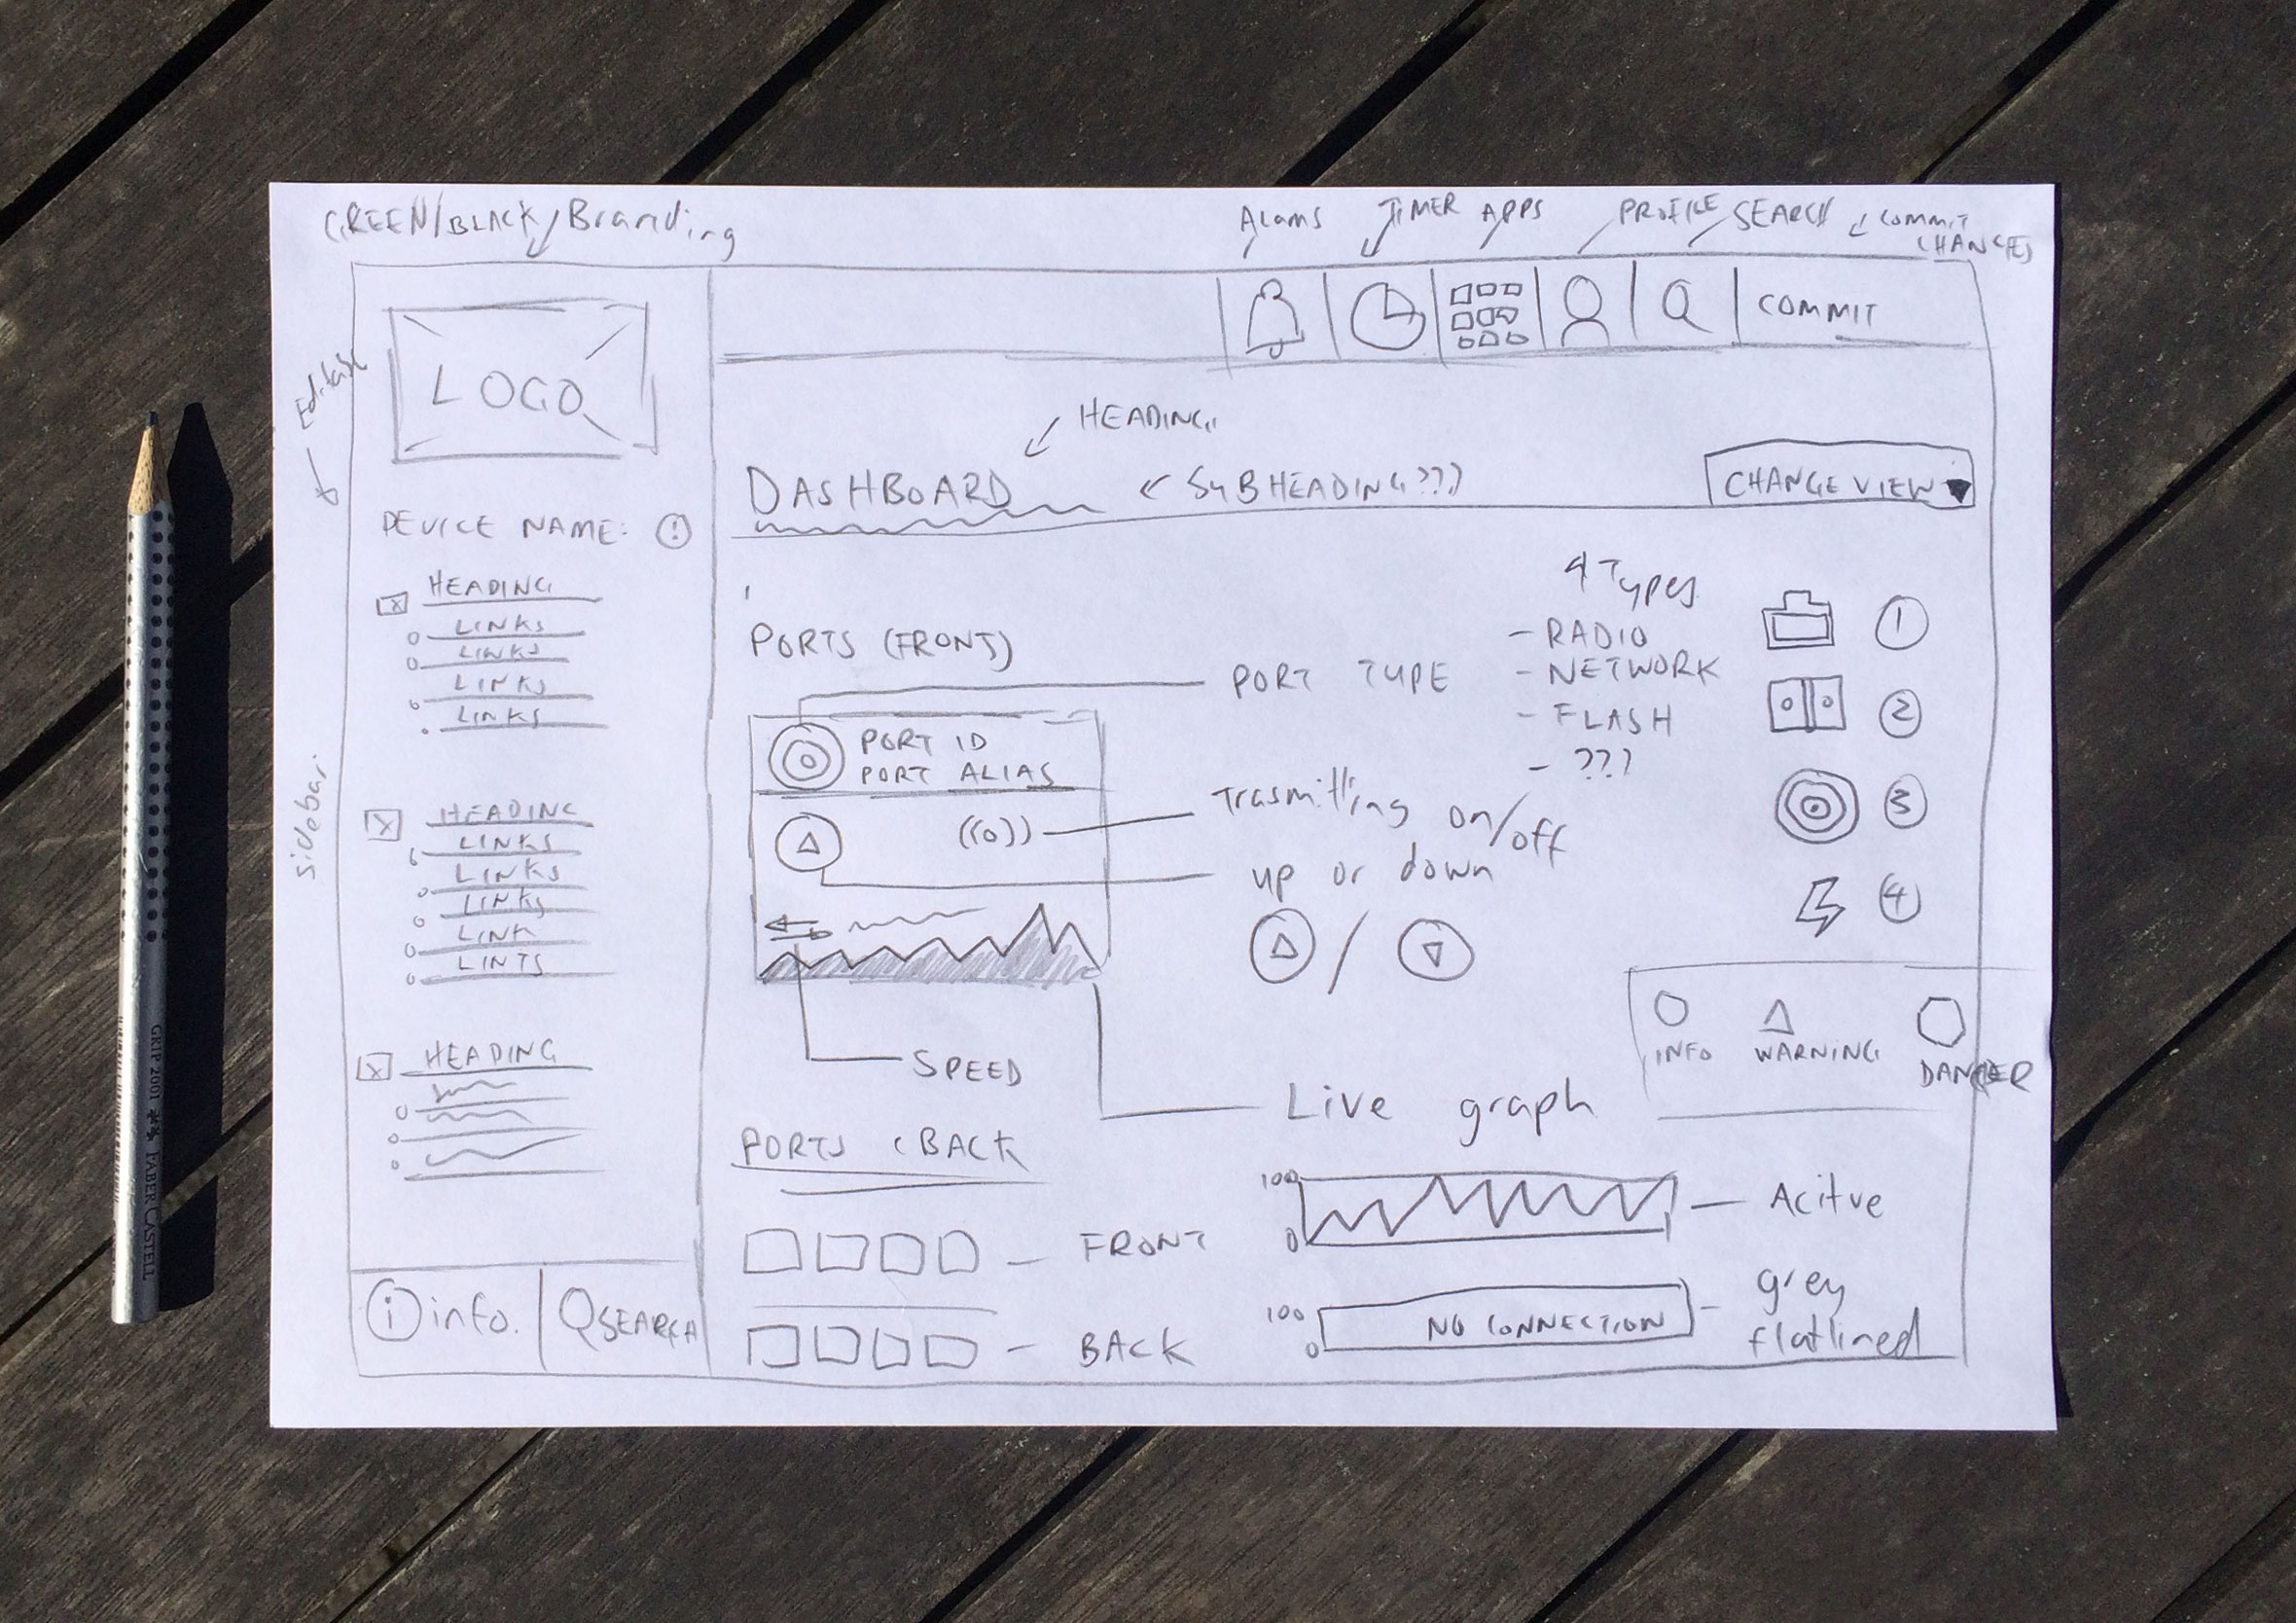 GREEN/BLACK/Branding
Alams
TIMER
APPS
PROFILE
SEARCH
COMMIT
CHANGES
LOGO
COMMIT
HEADING
DASHBOARD
SUBHEADING???
CHANGE VIEW
DEVICE NAME: !
sidebar
HEADING
LINKS
LINKS
LINKS
LINKS
HEADING
LINKS
LINKS
LINKS
LINK
LINTS
HEADING
i info.
SEARCH
PORTS (FRONT)
PORT TYPE
4 Types
- RADIO
- NETWORK
- FLASH
- ???
1
2
3
4
PORT ID
PORT ALIAS
((o))
Trasmitting on/off
up or down
SPEED
Live graph
INFO
WARNING
DANGER
PORTS (BACK
FRONT
BACK
100
0
Acitve
100
0
NO CONNECTION
grey
flatlined
GRIP 2001 FABER CASTELL